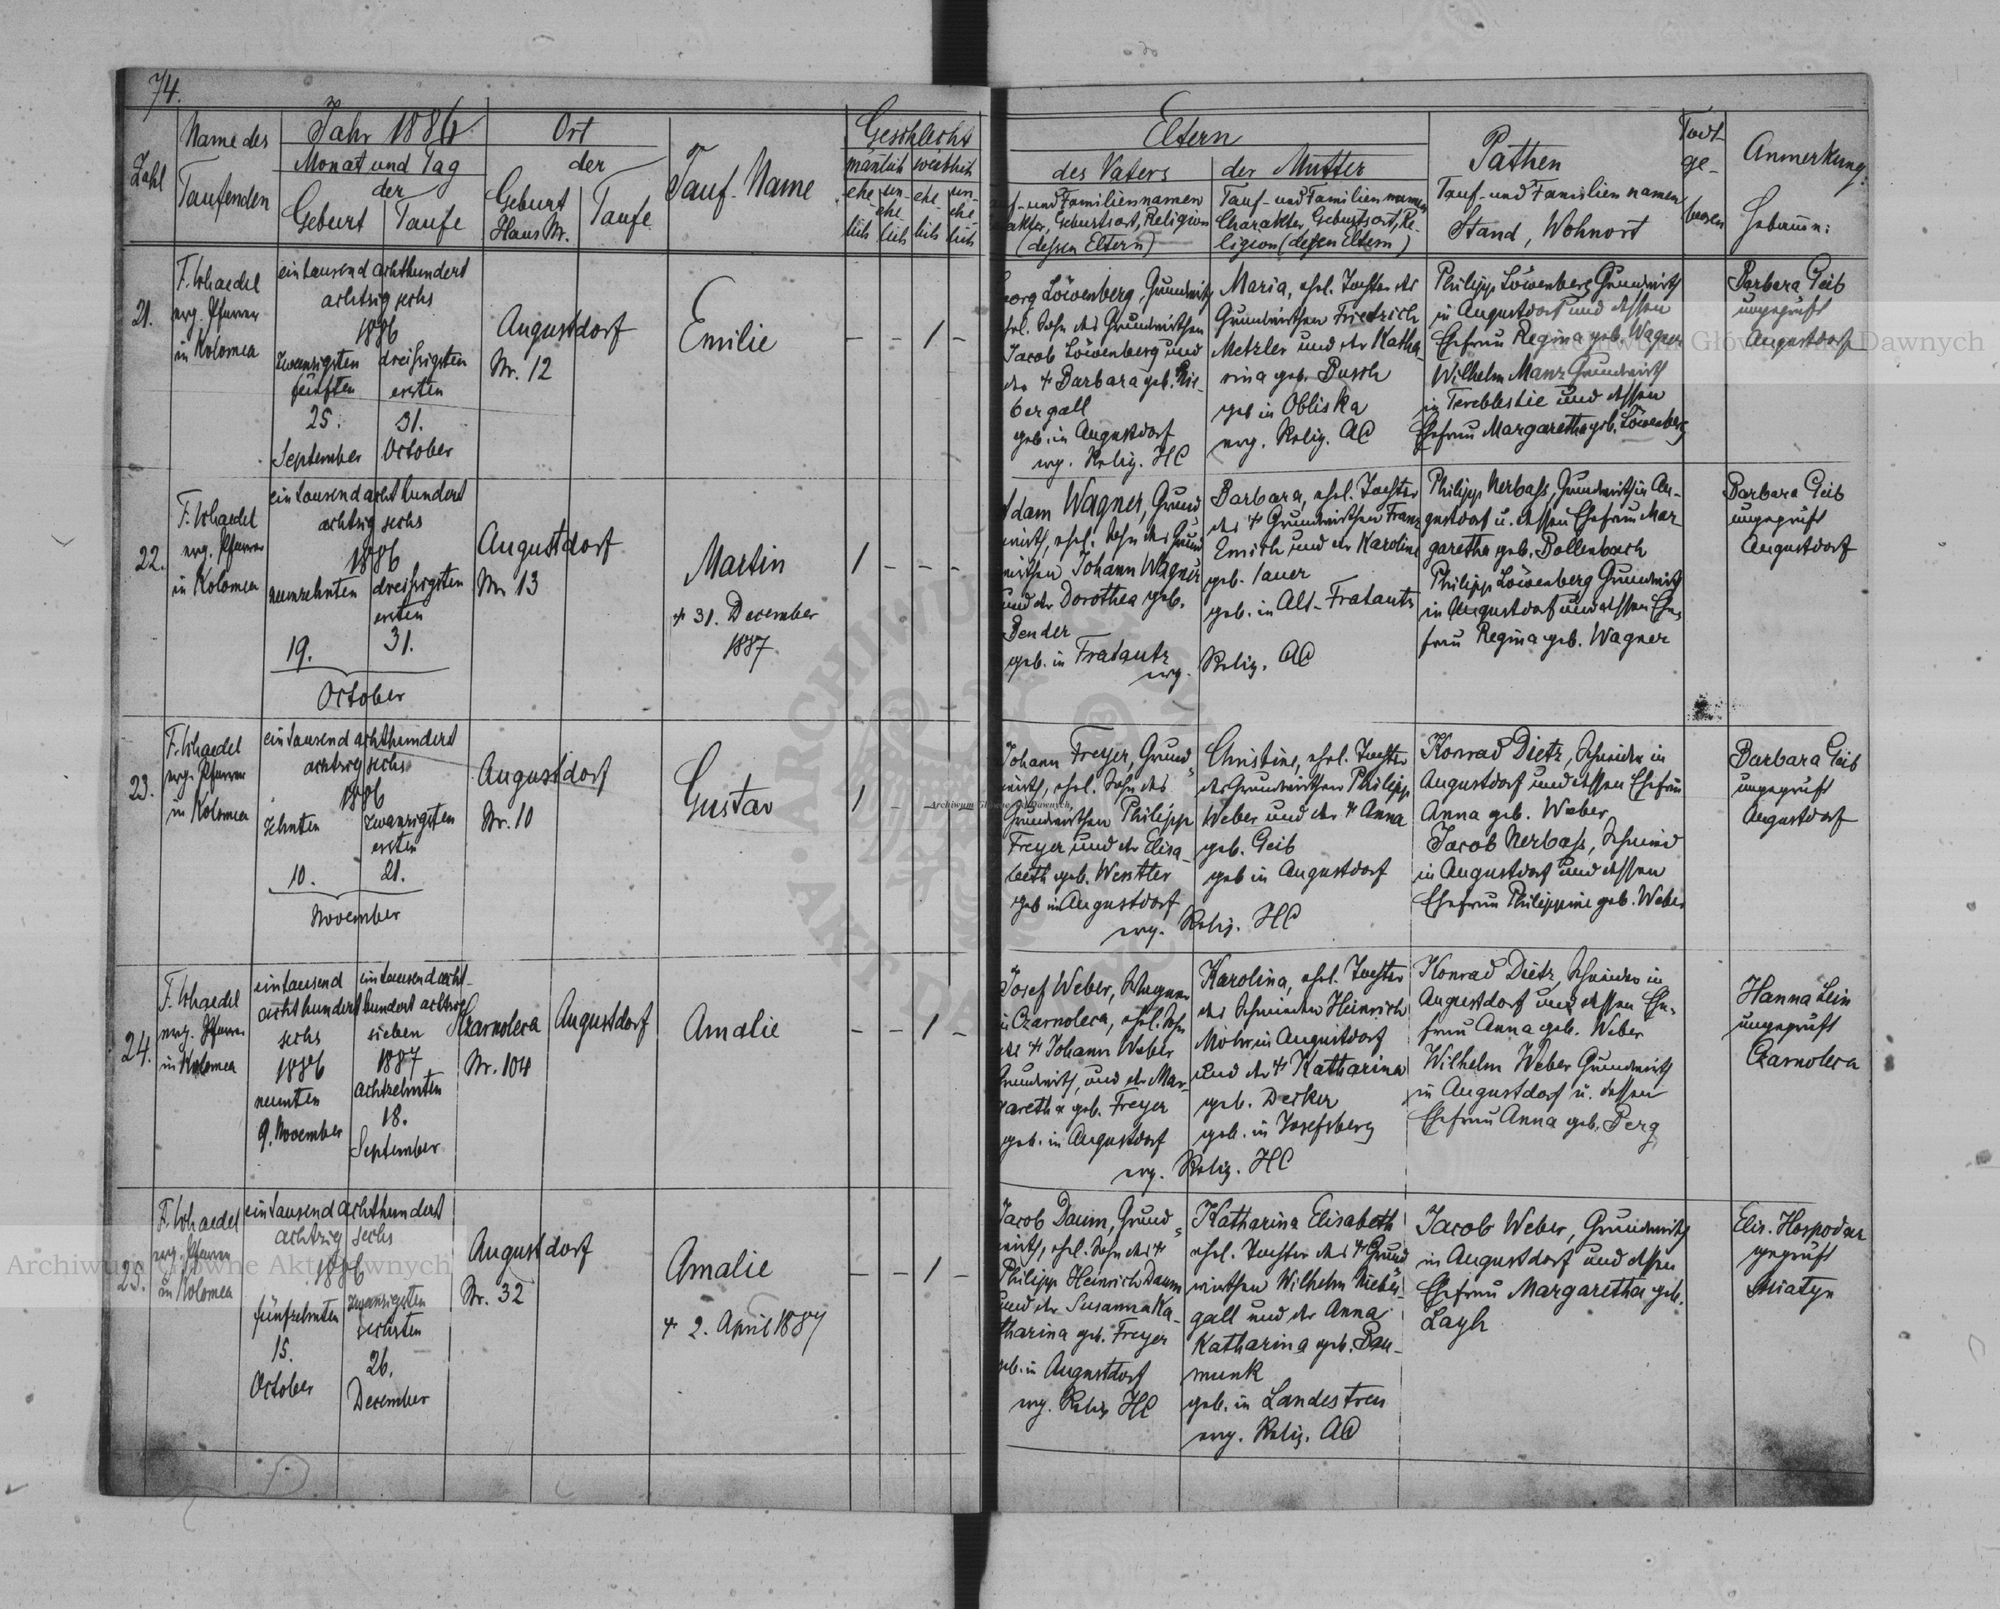 74.
Zahl
Name des
Taufenden
Jahr 1886
Monat und Tag
der
Geburt
Taufe
Ort
der
Geburt
Haus Nr.
Taufe
Tauf-Name
Geschlecht
mänlich weiblich
ehe-
lich
un-
ehe-
lich
ehe-
lich
un-
ehe-
lich
Eltern
des Vaters
und Familiennamen
Geburtsort, Religion
(dessen Eltern)
der Mutter
Tauf- und Familiennamen
Charakter, Geburtsort, Re-
ligion (dessen Eltern)
Pathen
Tauf- und Familiennamen
Stand, Wohnort
Todt
ge-
boren
Anmerkung:
Hebamm:
21.
F. Schaedel
evg. Pfarrer
in Kolomea
eintausend achthundert
achtzig sechs
1886
zwanzigsten
fünften
25.
September
dreißigsten
ersten
31.
October
Augustdorf
Nr. 12
Emilie
- - 1 -
Löwenberg, Grundwirth
ehl. Sohn des Grundwirthen
Jacob Löwenberg und
der + Barbara geb. Nie-
bergall
geb. in Augustdorf
evg. Relig. HC
Maria, ehl. Tochter des
Grundwirthen Friedrich
Metzler und der Katha-
rina geb. Busch
geb in Obliska
evg. Relig. AC
Philipp Löwenberg Grundwirth
in Augustdorf und dessen
Ehefrau Regina geb. Wagner
Wilhelm Manz Grundwirth
in Tereblestie und dessen
Ehefrau Margaretha geb. Löwenberg
Barbara Geib
ungeprüft
Augustdorf
22.
F. Schaedel
evg. Pfarrer
in Kolomea
eintausend acht hundert
achtzig sechs
1886
neunzehnten
dreißigsten
ersten
19.
31.
October
Augustdorf
Nr. 13
Martin
+ 31. December
1887.
1 - - -
Adam Wagner, Grund
wirth, ehl. Sohn des Grund
wirthen Johann Wagner
und der Dorothea geb.
Bender
geb. in Fratautz
evg. Relig. AC
Barbara, ehl. Tochter
des + Grundwirthen Franz
Emich und der Karoline
geb. Sauer
geb. in Alt-Fratautz
Philipp Nerbass, Grundwirth in Au-
gustdorf u. dessen Ehefrau Mar-
garetha geb. Bollenbach
Philipp Löwenberg Grundwirth
in Augustdorf und dessen Ehe-
frau Regina geb. Wagner
Barbara Geib
ungeprüft
Augustdorf
23.
F. Schaedel
evg. Pfarrer
in Kolomea
eintausend achthundert
achtzig sechs
1886
zehnten
zwanzigsten
ersten
10.
21.
November
Augustdorf
Nr. 10
Gustav
1 - -
Johann Freyer, Grund-
wirth, ehl. Sohn des
Grundwirthen Philipp
Freyer und der Elisa-
beth geb.
geb in Augustdorf
evg. Relig. HC
Christine, ehl. Tochter
des Grundwirthen Philipp
Weber und der + Anna
geb. Geib
geb in Augustdorf
Konrad Dietz, Schneider in
Augustdorf und dessen Ehefrau
Anna geb. Weber
Jacob Nerbass, Schmied
in Augustdorf und dessen
Ehefrau Philippine geb. Weber
Barbara Geib
ungeprüft
Augustdorf
24.
F. Schaedel
evg. Pfarrer
in Kolomea
eintausend
acht hundert
sechs
1886
neunten
9. November
eintausend acht-
hundert achtzig
sieben
1887
achtzehnten
18.
September
Czarnoleca
Nr. 104
Augustdorf
Amalie
- - 1 -
Josef Weber, Wagner
in Czarnoleca, ehl. Sohn
des + Johann Weber
Grundwirth, und der Mar-
garetha geb. Freyer
geb. in Augustdorf
evg. Relig. HC
Karolina, ehl. Tochter
des Schmieden Heinrich
Mohr in Augustdorf
und der + Katharina
geb. Decker
geb. in Josefsberg
Konrad Dietz, Schneider in
Augustdorf und dessen Ehe-
frau Anna geb. Weber
Wilhelm Weber Grundwirth
in Augustdorf u. dessen
Ehefrau Anna geb. Berg
Hanna Lein
ungeprüft
Czarnoleca
25.
F. Schaedel
evg. Pfarrer
in Kolomea
eintausend achthundert
achtzig sechs
1886
fünfzehnten
15.
October
zwanzigsten
sechsten
26.
December
Augustdorf
Nr. 32
Amalie
+ 2. April 1887
- - 1 -
Jacob Daum, Grund-
wirth, ehl. Sohn des +
Philipp Heinrich Daum
und der Susanna Ka-
tharina geb. Freyer
geb. in Augustdorf
evg. Relig HC
Katharina Elisabeth
ehl. Tochter des + Grund
wirthen Wilhelm Niebergall und der Anna
Katharina geb. Bau-
munk
geb. in Landestreu
evg. Relig. AC
Jacob Weber, Grundwirth
in Augustdorf und dessen
Ehefrau Margaretha geb.
Layh
Elis. Hospodar
geprüft
Sniatyn
Archiwum Główne Akt Dawnych
Archiwum Główne Akt Dawnych
Archiwum Główne Akt Dawnych